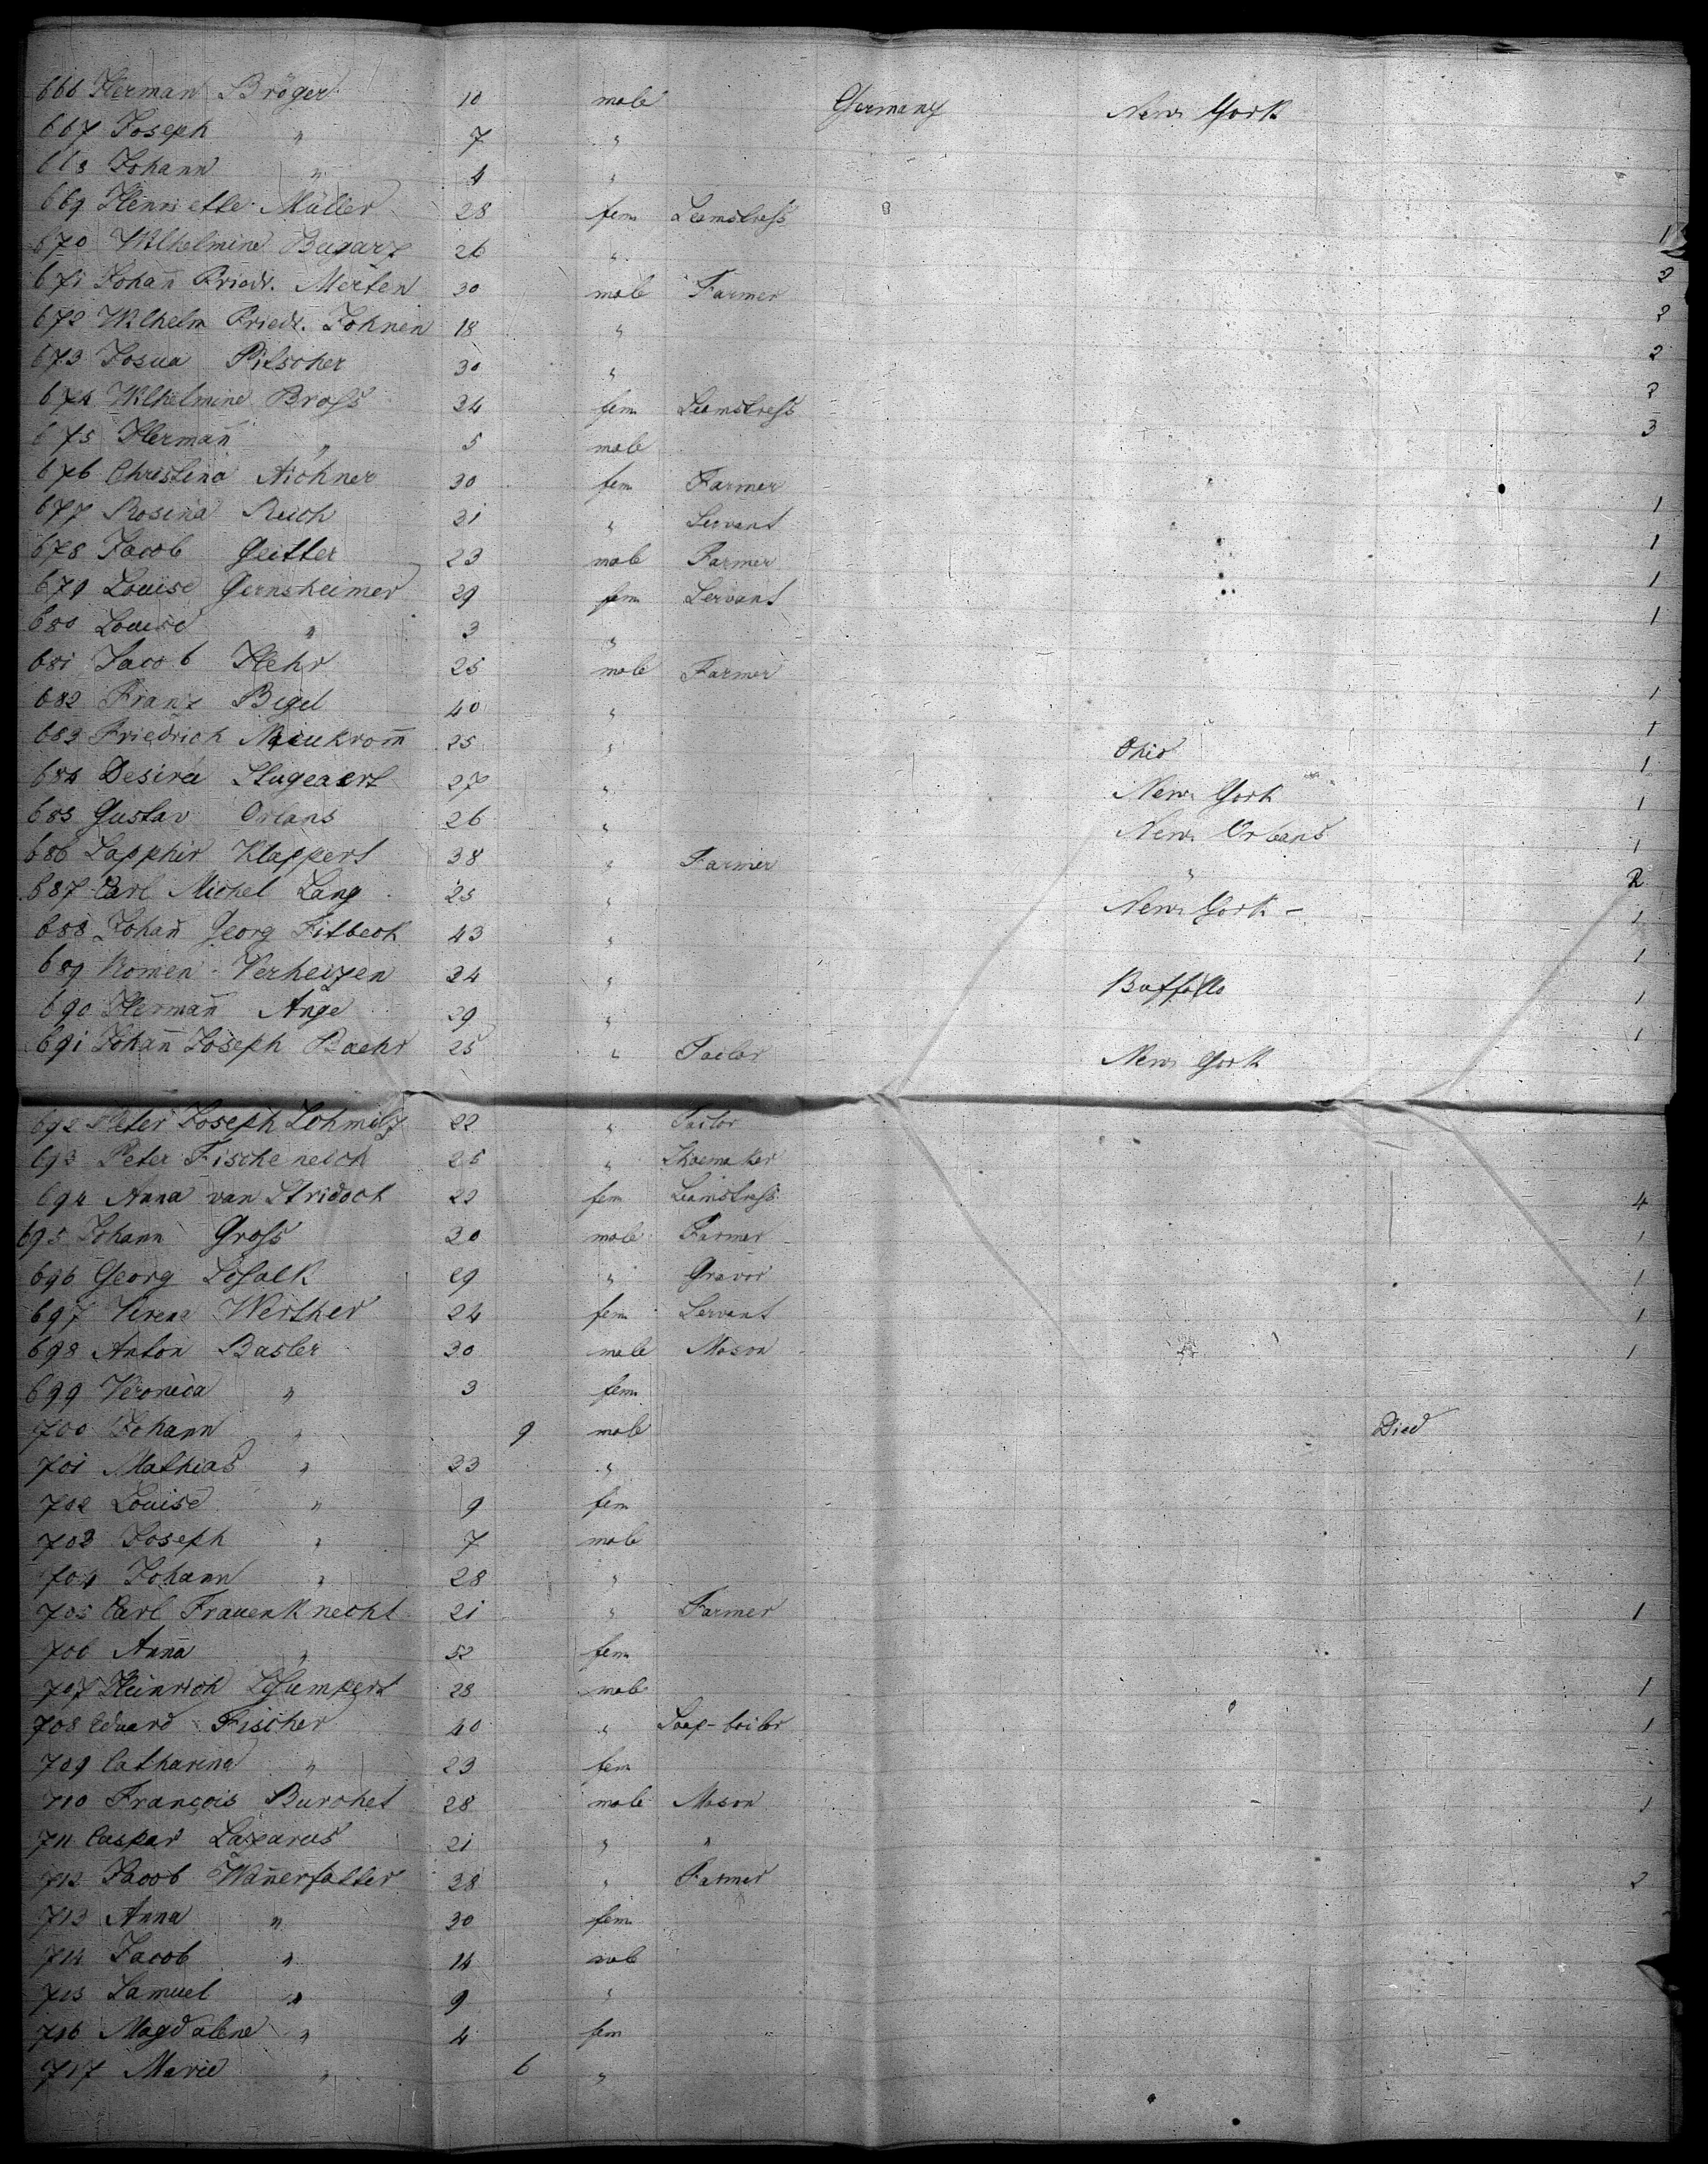 666 Herman Bröger 10 male Germany New York
667 Joseph " 7 "
668 Johann " 4 "
669 Henriette Müller 28 fem Seamstress
670 Wilhelmine 26 " 1
671 Johan̄ Friedr. Merten 30 male Farmer 2
672 Wilhelm Friedr. Johnen 18 " 2
673 Josua Pitscher 30 " 2
674 Wilhelmine Bross 34 fem Seamstress 2
675 Herman̄ " 5 male 3
676 Christina Aichner 30 fem Farmer
677 Rosina Reich 31 " Servant 1
678 Jacob Geitter 23 male Farmer 1
679 Louise Gernsheimer 29 fem Servant 1
680 Louise " 3 " 1
681 Jacob Hehr 25 male Farmer
682 Franz Bigel 40 " 1
683 Friedrich 25 " Ohio 1
684 Desirée 27 " New York 1
685 Gustav Orlans 26 " New Orleans 1
686 Sapphir Klappert 38 " Farmer " 1
687 Carl Michel Lang 25 " New York - 2
688 Johan̄ Georg Fitbeck 43 " 1
689 Romen Verheizen 34 " Buffallo 1
690 Herman̄ Ange 29 " 1
691 Johan̄ Joseph Baehr 25 " Tailor New York 1
692 Peter Joseph Schmitz 22 " Tailor
693 Peter Fischeneich 25 " Shoemaker
694 Anna van Stridock 22 fem Seamstress 4
695 Johann Gross 30 male Farmer 1
696 Georg 29 " Gravor 1
697 Verena Werther 24 fem Servant 1
698 Anton Basler 30 male Mason 1
699 Veronica " 3 fem
700 Johann " 9 male Died
701 Mathias " 23 "
702 Louise " 9 fem
703 Joseph " 7 male
704 Johann " 28 "
705 Carl Frauenknecht 21 " Farmer 1
706 An̄a " 52 fem
707 Heinrich 28 male 1
708 Eduard Fischer 40 " Soap-boiler 1
709 Catharina " 23 fem
710 François Burchet 28 male Mason 1
711 Caspar Lazarus 21 " "
712 Jacob Wan̄erfatter 38 " Farmer 2
713 Anna " 30 fem
714 Jacob " 14 male
715 Samuel " 9 "
716 Magdalene " 4 fem
717 Marie " 6 "